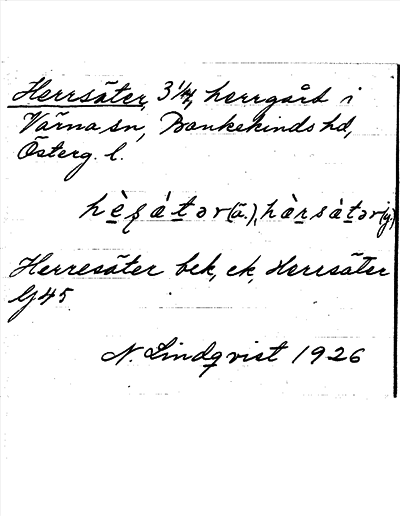 Herrsäter, 3 1/4, herrgård i
Värna sn, Bankekinds hd,
Österg. l.
hèʂá̀tər (ä.), hàrsàtər (y.)
Herresäter bek, ek, Herrsäter
G45
N. Lindqvist 1926